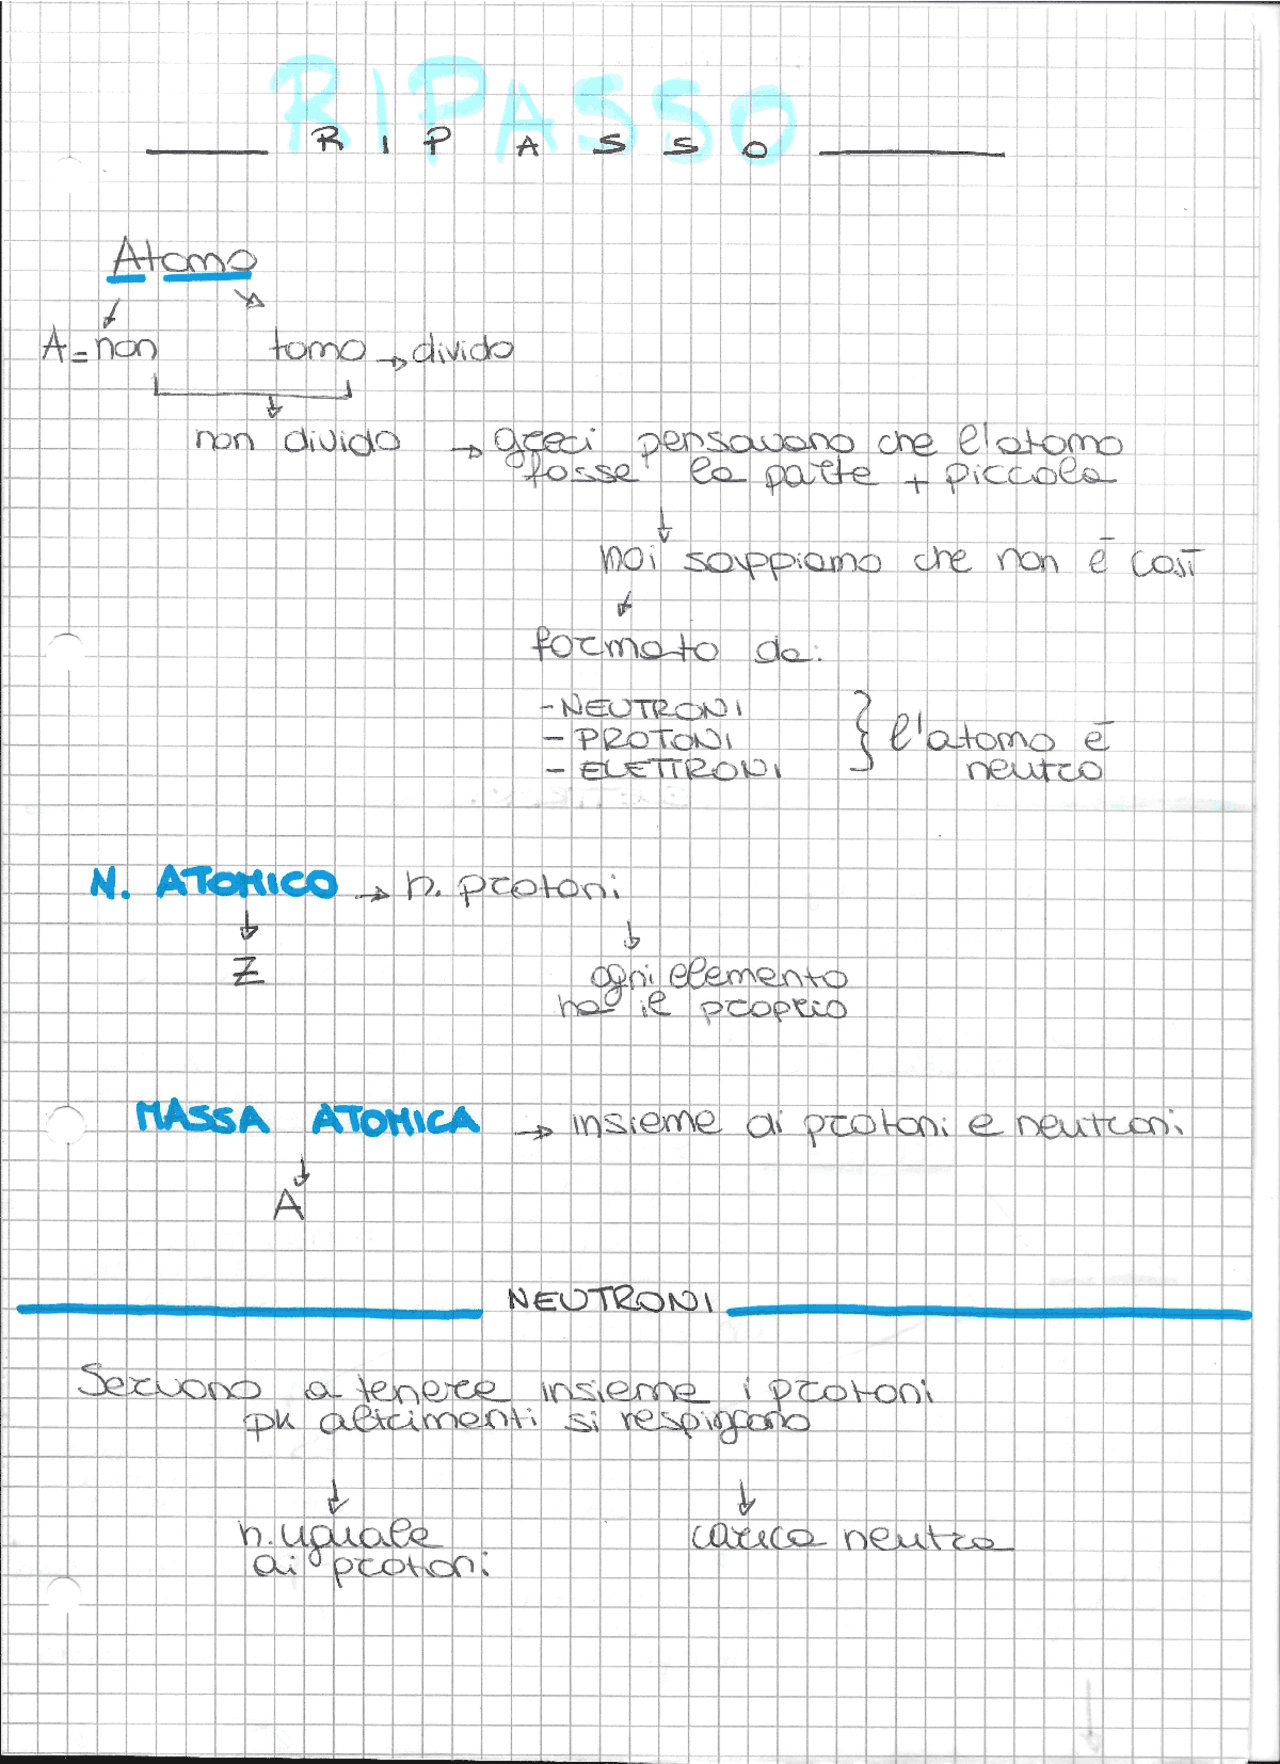 RIPASSO
RIPASSO
Atomo
A = non tomo → divido
non divido → greci pensavano che l'atomo
fosse la parte + piccola
noi sappiamo che non è così
formato da:
- NEUTRONI
- PROTONI } l'atomo è
- ELETTRONI neutro
N. ATOMICO → n. protoni
Z ogni elemento
ha il proprio
MASSA ATOMICA → insieme di protoni e neutroni
A
NEUTRONI
Servono a tenere insieme i protoni
pk altrimenti si respingono
n. uguale carica neutra
ai protoni